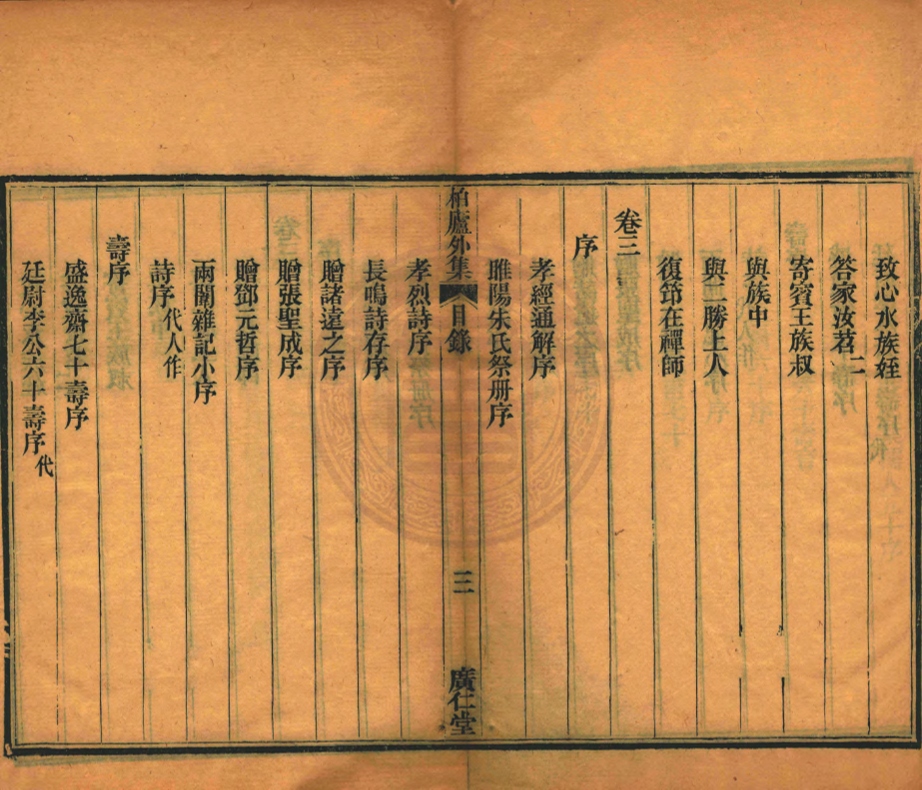 致心水族姪
答家汝茗二
寄賓王族叔
與族中
與二勝上人
復笻在禪師
卷三
序
孝經通解序
睢陽朱氏祭冊序
柏廬外集
目錄
三
廣仁堂
孝烈詩序
長鳴詩存序
贈諸遠之序
贈張聖成序
贈鄧元哲序
兩閩雜記小序
詩序代人作
壽序
盛逸齋七十壽序
廷尉李公六十壽序代